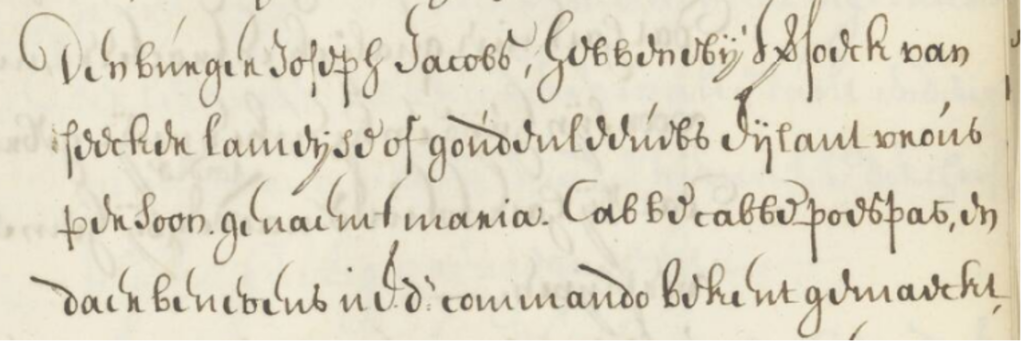 Den burger Joseph Jacobs, hebbende bij versoeck van
seecker lameijse of gouddulduibs Eijlant vrous
persoon. genaemt maria. Cabbe cabbe poespas, en
daer benevens UE.d: commando bekent gemaeckt,